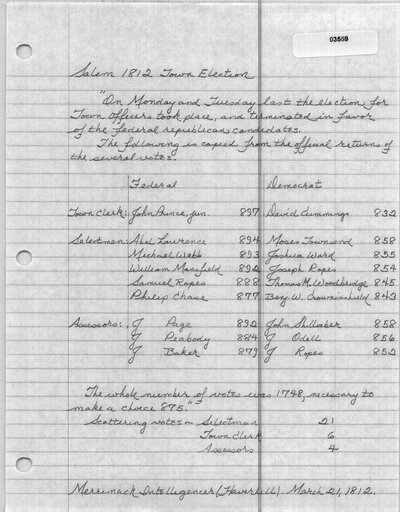 03559
Salem 1812 Town Election
"On Monday and Tuesday last the election for
Town Officers took place, and terminated in favor
of the federal republican candidates.
The following is copied from the official return of
the several votes".
Federal Democrat
Town Clerk: John Prince, jun. 897 David Cummings 832
Selectman: Abel Lawrence 894 Moses Townsend 858
Michael Webb 893 Joshua Ward 855
William Mansfield 892 Joseph Ropes 854
Samuel Ropes 888 Thomas M. Woodbridge 845
Philip Chase 877 Benj. W. Crowninshield 843
Assessors: J Page 892 John Shillaber 858
J Peabody 884 J Odell 856
J Baker 879 J Ropes 852
"The whole number of votes was 1748, necessary to
make a choice 875."
Scattering votes - Selectman 21
Town Clerk 6
Assessors 4
Merrimack Intelligencer (Haverhill). March 21, 1812.